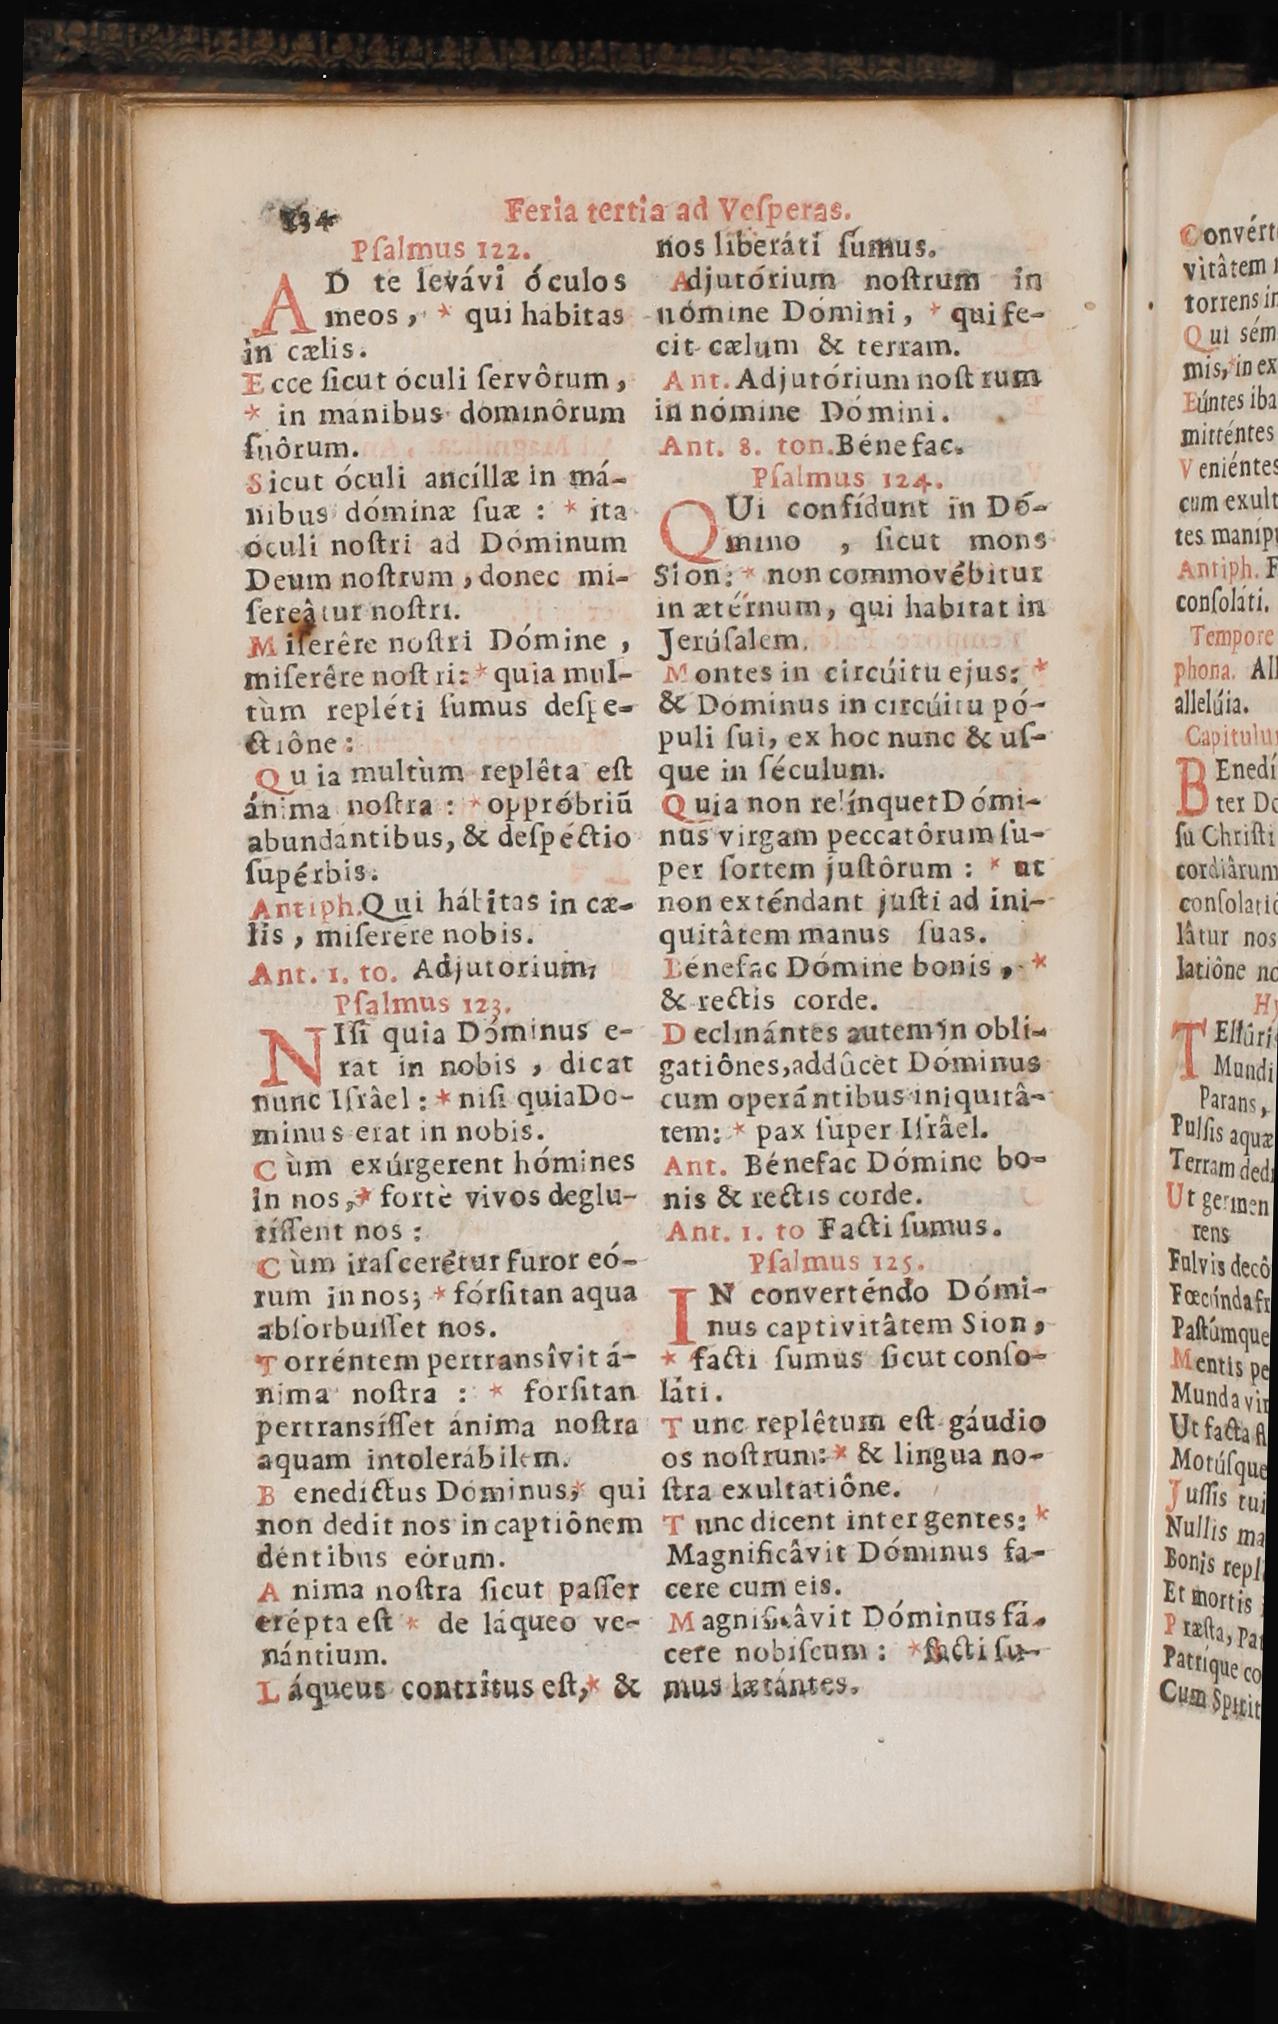 134
Feria tertia ad Veſperas.
Pſalmus 122.
AD te levávi óculos
meos, * qui hábitas
in cælis.
Ecce ſicut óculi ſervôrum,
* in mánibus dominôrum
ſuôrum.
Sicut óculi ancíllæ in má-
nibus dóminæ ſuæ : * ita
óculi noſtri ad Dóminum
Deum noſtrum, donec mi-
ſereâtur noſtri.
Miſerêre noſtri Dómine,
miſerêre noſtri: * quia mul-
tùm repléti ſumus deſpe-
ctiône:
Quia multùm replêta eſt
ánima noſtra : * oppróbriū
abundántibus, & deſpéctio
ſupérbis.
Antiph. Qui hábitas in cæ-
lis, miſerére nobis.
Ant. 1. to. Adjutorium,
Pſalmus 123.
NIſi quia Dóminus e-
rat in nobis, dicat
nunc Iſrâel : * niſi quia Do-
minus erat in nobis.
Cùm exúrgerent hómines
in nos, * fortè vivos deglu-
tiſſent nos :
Cùm iraſcerétur furor eó-
rum in nos; * fórſitan aqua
abſorbuiſſet nos.
Torréntem pertransîvit á-
nima noſtra : * forſitan
pertransíſſet ánima noſtra
aquam intolerábilem.
Benedíctus Dóminus, * qui
non dedit nos in captiônem
déntibus eórum.
Anima noſtra ſicut paſſer
erépta eſt * de láqueo ve-
nántium.
Láqueus contrîtus eſt, * &
nos liberáti ſumus.
Adjutórium noſtrum in
nómine Dómini, * qui fe-
cit cælum & terram.
Ant. Adjutórium noſtrum
in nómine Dómini.
Ant. 8. ton. Bénefac.
Pſalmus 124.
QUi confídunt in Dó-
mino , ſicut mons
Sion: * non commovébitur
in ætérnum, qui habitat in
Jerúſalem.
Montes in circúitu ejus: *
& Dominus in circúitu pó-
puli ſui, ex hoc nunc & uſ-
que in ſéculum.
Quia non relínquet Dómi-
nus virgam peccatôrum ſu-
per ſortem juſtôrum : * ut
non exténdant juſti ad ini-
quitâtem manus ſuas.
Bénefac Dómine bonis, *
& rectis corde.
Declinántes autem in obli-
gatiônes, addûcet Dóminus
cum operántibus iniquitâ-
tem: * pax ſuper Iſrâel.
Ant. Bénefac Dómine bo-
nis & rectis corde.
Ant. 1. to Facti ſumus.
Pſalmus 125.
IN converténdo Dómi-
nus captivitâtem Sion,
* facti ſumus ſicut conſo-
láti.
Tunc replêtum eſt gáudio
os noſtrum: * & lingua no-
ſtra exultatiône.
Tunc dicent inter gentes: *
Magnificâvit Dóminus fa-
cere cum eis.
Magnificâvit Dóminus fá-
cere nobiſcum : * facti ſu-
mus lætántes.
Convért
vitâtem
torrens in
Qui sém
mis, * in ex
Eúntes iba
mitténtes
Veniéntes
cum exult
tes manip
Antiph. F
conſoláti.
Tempore
phona. All
allelúia.
Capitulu
BEnedí
ter De
ſu Chriſti
cordiârum
conſolatiô
lâtur nos
latiône no
Hy
TEllûris
Mundi
Parans,
Pulſis aquæ
Terram ded
Ut germen
rens
Fulvis decô
Fœcúnda fr
Paſtúmque
Mentis pe
Munda vir
Ut facta fl
Motúſque
Juſſis tui
Nullis ma
Bonis repl
Et mortis
Præſta, Pat
Patríque co
Cum Spirit